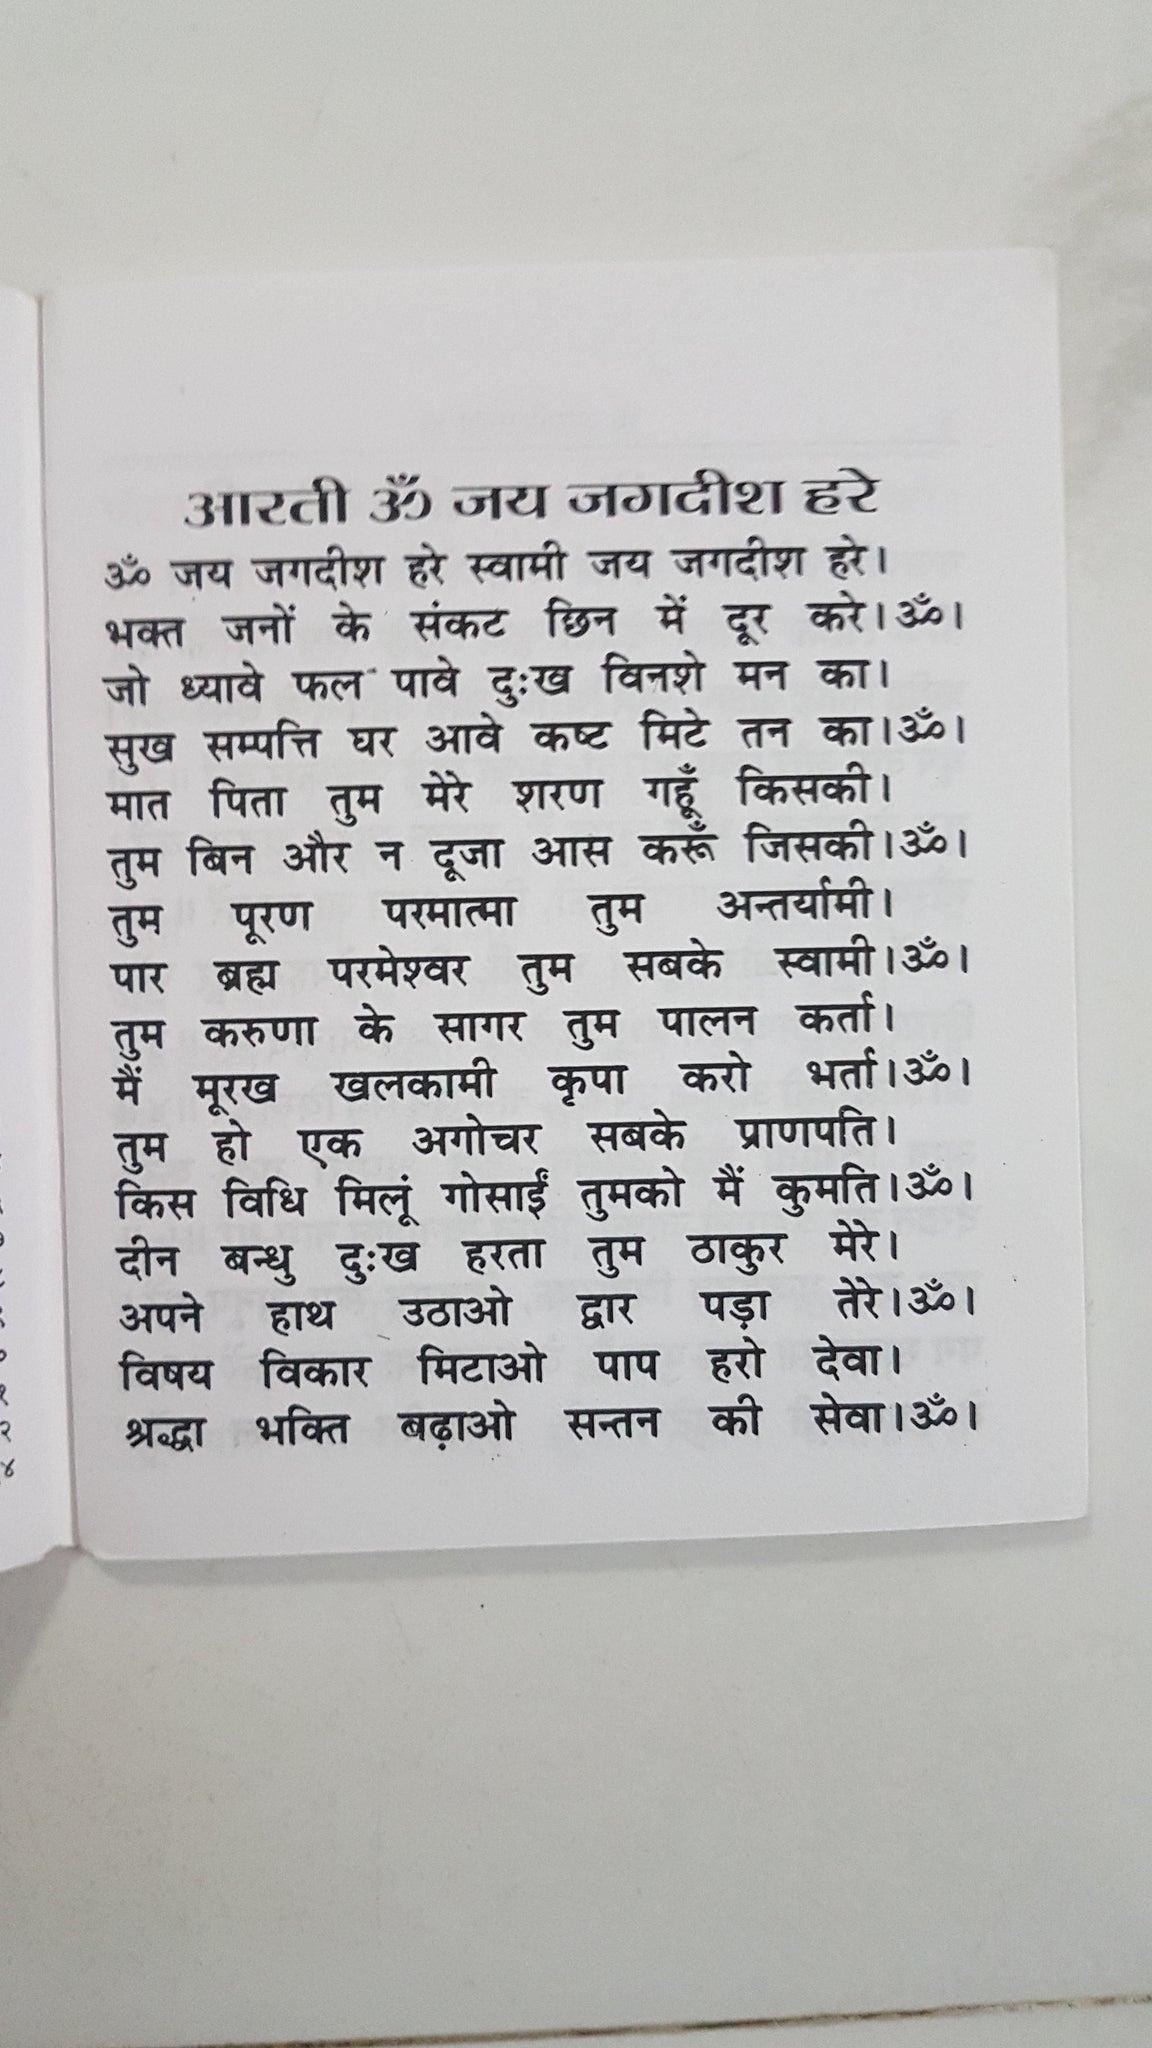 आरती ॐ जय जगदीश हरे
ॐ जय जगदीश हरे स्वामी जय जगदीश हरे।
भक्त जनों के संकट छिन में दूर करे।ॐ।
जो ध्यावे फल पावे दुःख विनशे मन का।
सुख सम्पत्ति घर आवे कष्ट मिटे तन का।ॐ।
मात पिता तुम मेरे शरण गहूँ किसकी।
तुम बिन और न दूजा आस करूँ जिसकी।ॐ।
तुम पूरण परमात्मा तुम अन्तर्यामी।
पार ब्रह्म परमेश्वर तुम सबके स्वामी।ॐ।
तुम करुणा के सागर तुम पालन कर्ता।
मैं मूरख खलकामी कृपा करो भर्ता।ॐ।
तुम हो एक अगोचर सबके प्राणपति।
किस विधि मिलूं गोसाईं तुमको मैं कुमति।ॐ।
दीन बन्धु दुःख हरता तुम ठाकुर मेरे।
अपने हाथ उठाओ द्वार पड़ा तेरे।ॐ।
विषय विकार मिटाओ पाप हरो देवा।
श्रद्धा भक्ति बढ़ाओ सन्तन की सेवा।ॐ।